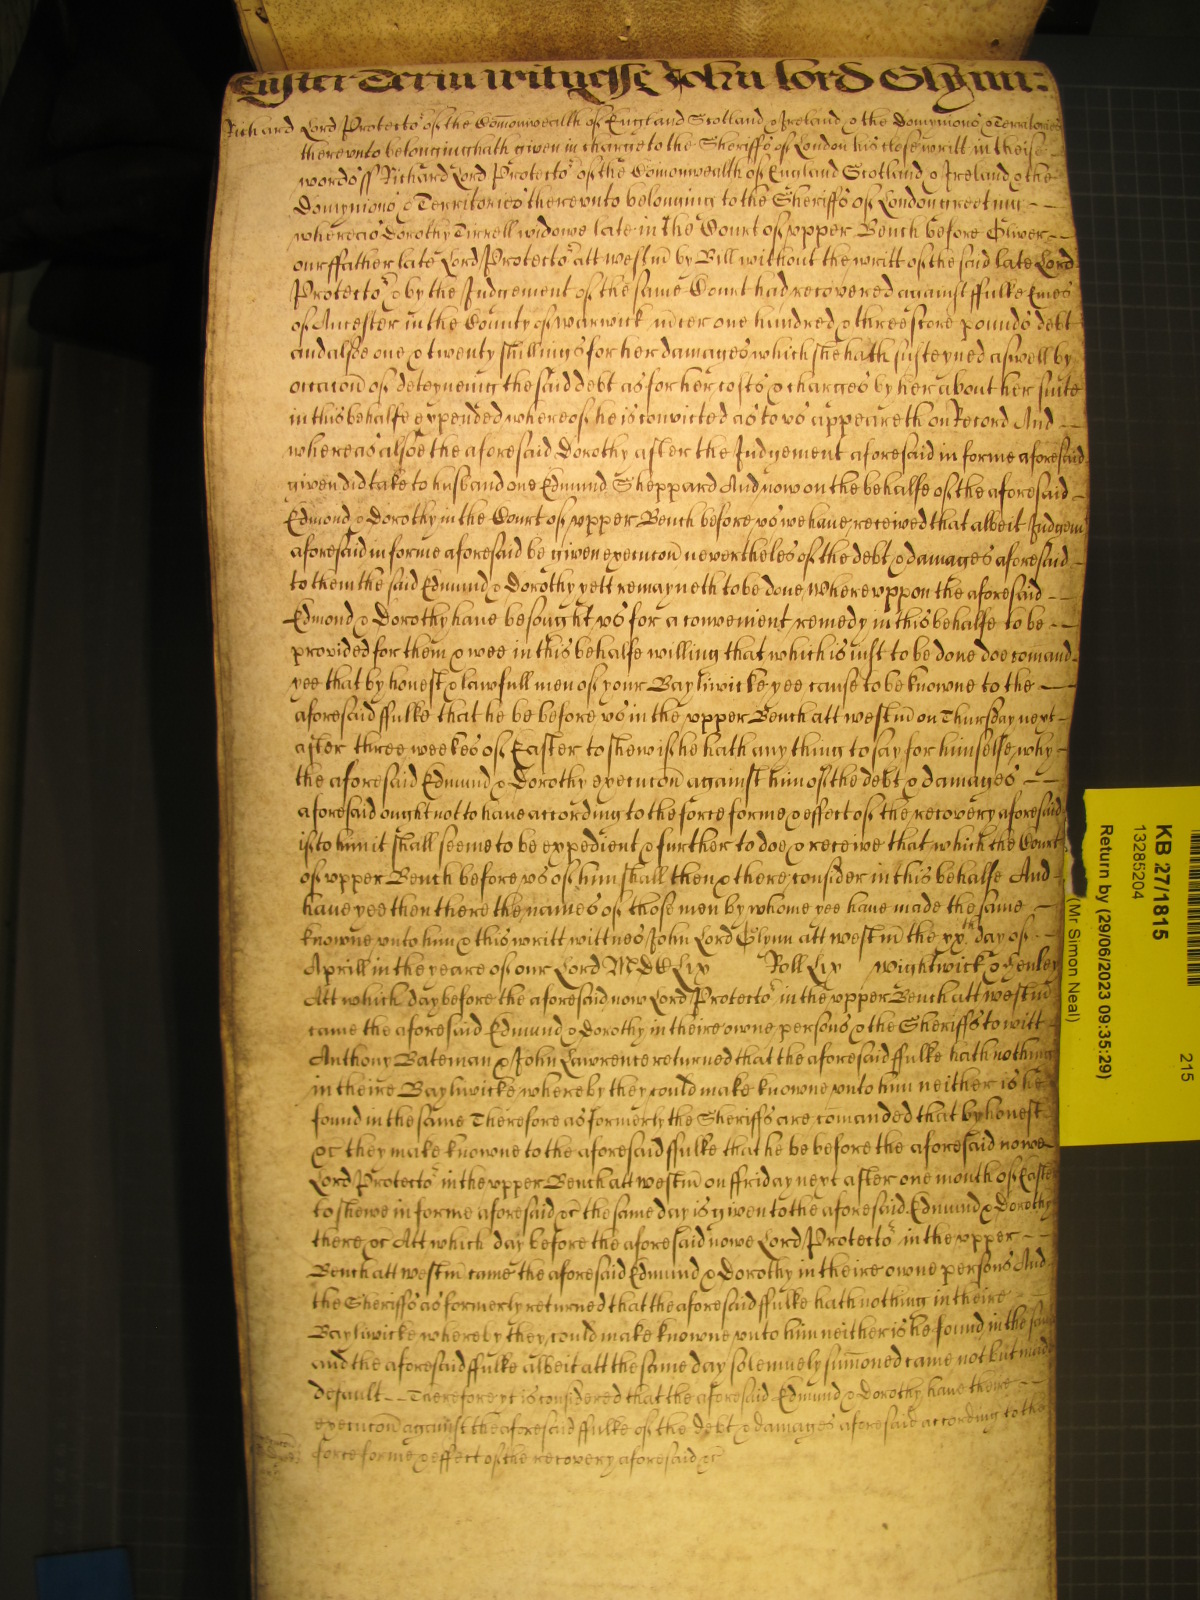 Easter Terme witnesse John lord Glynn:
Richard Lord Protector of the Comonwealth of England Scotland & Ireland & the Dominions & Territories
therevnto belonging hath given in charge to the Sheriffs of London his close writt in theise
words ss Richard Lord Protector of the Comonwealth of England Scotland & Ireland & the
Domynions & Territories therevnto belonging to the Sheriffs of London greeting
whereas Dorothy Tirrell widowe late in the Court of vpper Bench before Oliver
our ffather late Lord Protector att westm by Bill without the writt of the said late Lord
Protector & by the Judgement of the same Court had recovered against ffulke Emes
of Ancester in the County of warwick one hundred & threescore pounds debt
and alsoe one & twenty shillings for her damages which she hath susteyned aswell by
occacion of deteyneing the said debt as for her costs & charges by her about her suite
in this behalfe expended whereof he is convicted as to vs appeareth on Record And
whereas alsoe the aforesaid Dorothy after the Judgement aforesaid in forme aforesaid
given did take to husband one Edmund Sheppard And now on the behalfe of the aforesaid
Edmond & Dorothy in the Court of vpper Bench before vs we have received that albeit Judgem
aforesaid in forme aforesaid be given execucon neverthelesse of the debt & damages aforesaid
to them the said Edmund & Dorothy yett remayneth to be done wherevppon the aforesaid
Edmond & Dorothy have besought vs for a convenient remedy in this behalfe to be
provided for them & wee in this behalfe willing that which is iust to be done doe comand
yee that by honest & lawfull men of your Bayliwicke yee cause to be knowne to the
aforesaid ffulke that he be before vs in the vpper Bench att westm on Thursday next
after three weekes of Easter to shew if he hath any thing to say for himselfe why
the aforesaid Edmund & Dorothy execucon against him of the debt & damages
aforesaid ought not to have according to the force forme & effect of the recovery aforesaid
if to him it shall seeme to be expedient & further to doe & receive that which the Court
of vpper Bench before vs of him shall then & there consider in this behalfe And
have yee then there the names of those men by whome yee have made the same
knowne vnto him & this writt wittnes John Lord Glynn att westm the xxth day of
Aprill in the yeare of our Lord MDCLix Roll Lix wightwick & henley
Att which day before the aforesaid now Lord Protector in the vpper Bench att westm
came the aforesaid Edmund & Dorothy in theire owne persons & the Sheriffs to witt
Anthony Bateman & John Lawrence returned that the aforesaid ffulke hath nothing
in theire Bayliwicke whereby they could make knowne vnto him neither is he
found in the same Therefore as formerly the Sheriffs are comanded that by honest
&c they make knowne to the aforesaid ffulke that he be before the aforesaid nowe
Lord Protector in the vpper Bench att westm on ffriday next after one month of Easter
to shewe in forme aforesaid &c the same day is given to the aforesaid Edmund & Dorothy
there &c Att which day before the aforesaid nowe Lord Protector in the vpper
Bench att westm came the aforesaid Edmund & Dorothy in theire owne persons And
the Sheriffs as formerly returned that the aforesaid ffulke hath nothing in theire
Bayliwicke whereby they could make knowne vnto him neither is he found in the same
and the aforesaid ffulke albeit att the same day solemnely sumoned came not but made
default Therefore yt is considered that the aforesaid Edmund & Dorothy have there
execucon against the aforesaid ffulke of the debt & damages aforesaid according to the
force forme & effect of the recovery aforesaid &c
KB 27/1815
13285204
Return by (29/06/2023 09:35:29)
(Mr Simon Neal)
215